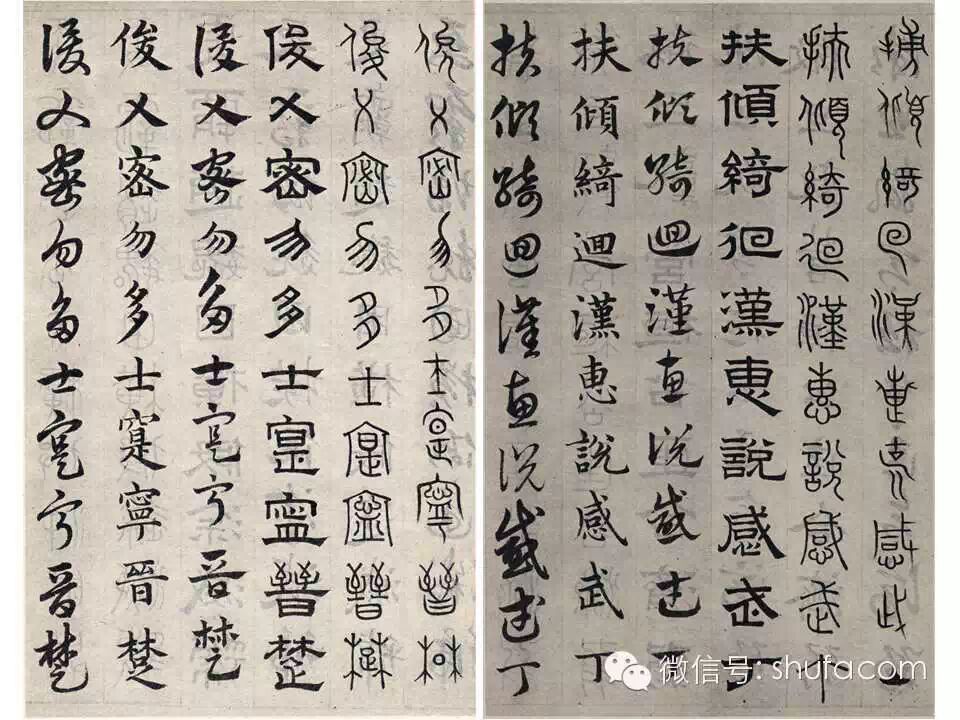 扶傾綺迴漢惠說感武丁
扶傾綺迴漢惠說感武丁
扶傾綺迴漢惠說感武丁
扶傾綺迴漢惠說感武丁
扶傾綺迴漢惠說感武丁
扶傾綺迴漢惠說感武丁
俊乂密勿多士寔寧晉楚
俊乂密勿多士寔寧晉楚
俊乂密勿多士寔寧晉楚
俊乂密勿多士寔寧晉楚
俊乂密勿多士寔寧晉楚
俊乂密勿多士寔寧晉楚
微信号: shufacom